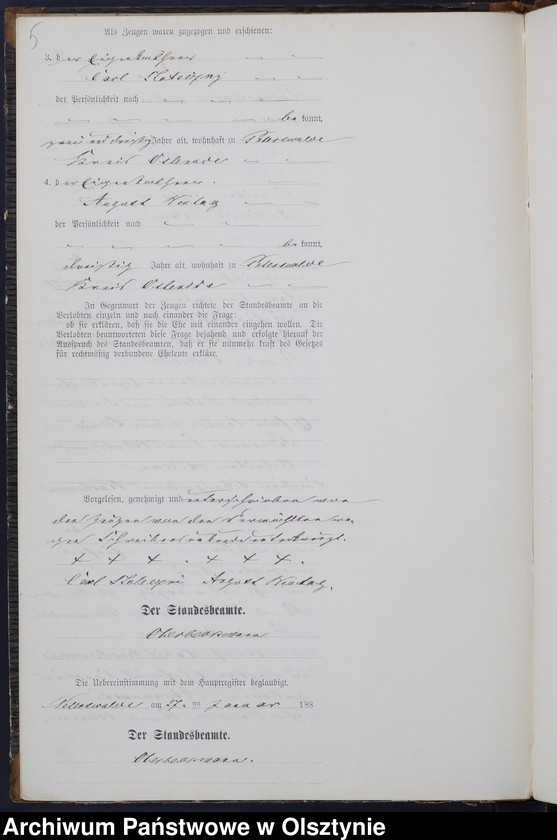 5
Als Zeugen waren zugezogen und erschienen:
3. der Eigenkäthner
Carl
der Persönlichkeit nach
be kannt,
zwei und dreißig Jahre alt, wohnhaft zu
Kreis Osterode
4. der Eigenkäthner
August
der Persönlichkeit nach
be kannt,
dreißig Jahre alt, wohnhaft zu
Kreis Osterode
In Gegenwart der Zeugen richtete der Standesbeamte an die
Verlobten einzeln und nach einander die Frage:
ob sie erklären, daß sie die Ehe mit einander eingehen wollen. Die
Verlobten beantworteten diese Frage bejahend und erfolgte hierauf der
Ausspruch des Standesbeamten, daß er sie nunmehr kraft des Gesetzes
für rechtmäßig verbundene Eheleute erkläre.
Vorgelesen, genehmigt und unterschrieben von
den Zeugen von den Vermählten we-
gen Schreibensunkunde unterkreuzt.
+ + + . + + + .
Carl August
Der Standesbeamte.
Die Uebereinstimmung mit dem Hauptregister beglaubigt.
am 27. ten Januar 188
Der Standesbeamte.
Archiwum Państwowe w Olsztynie